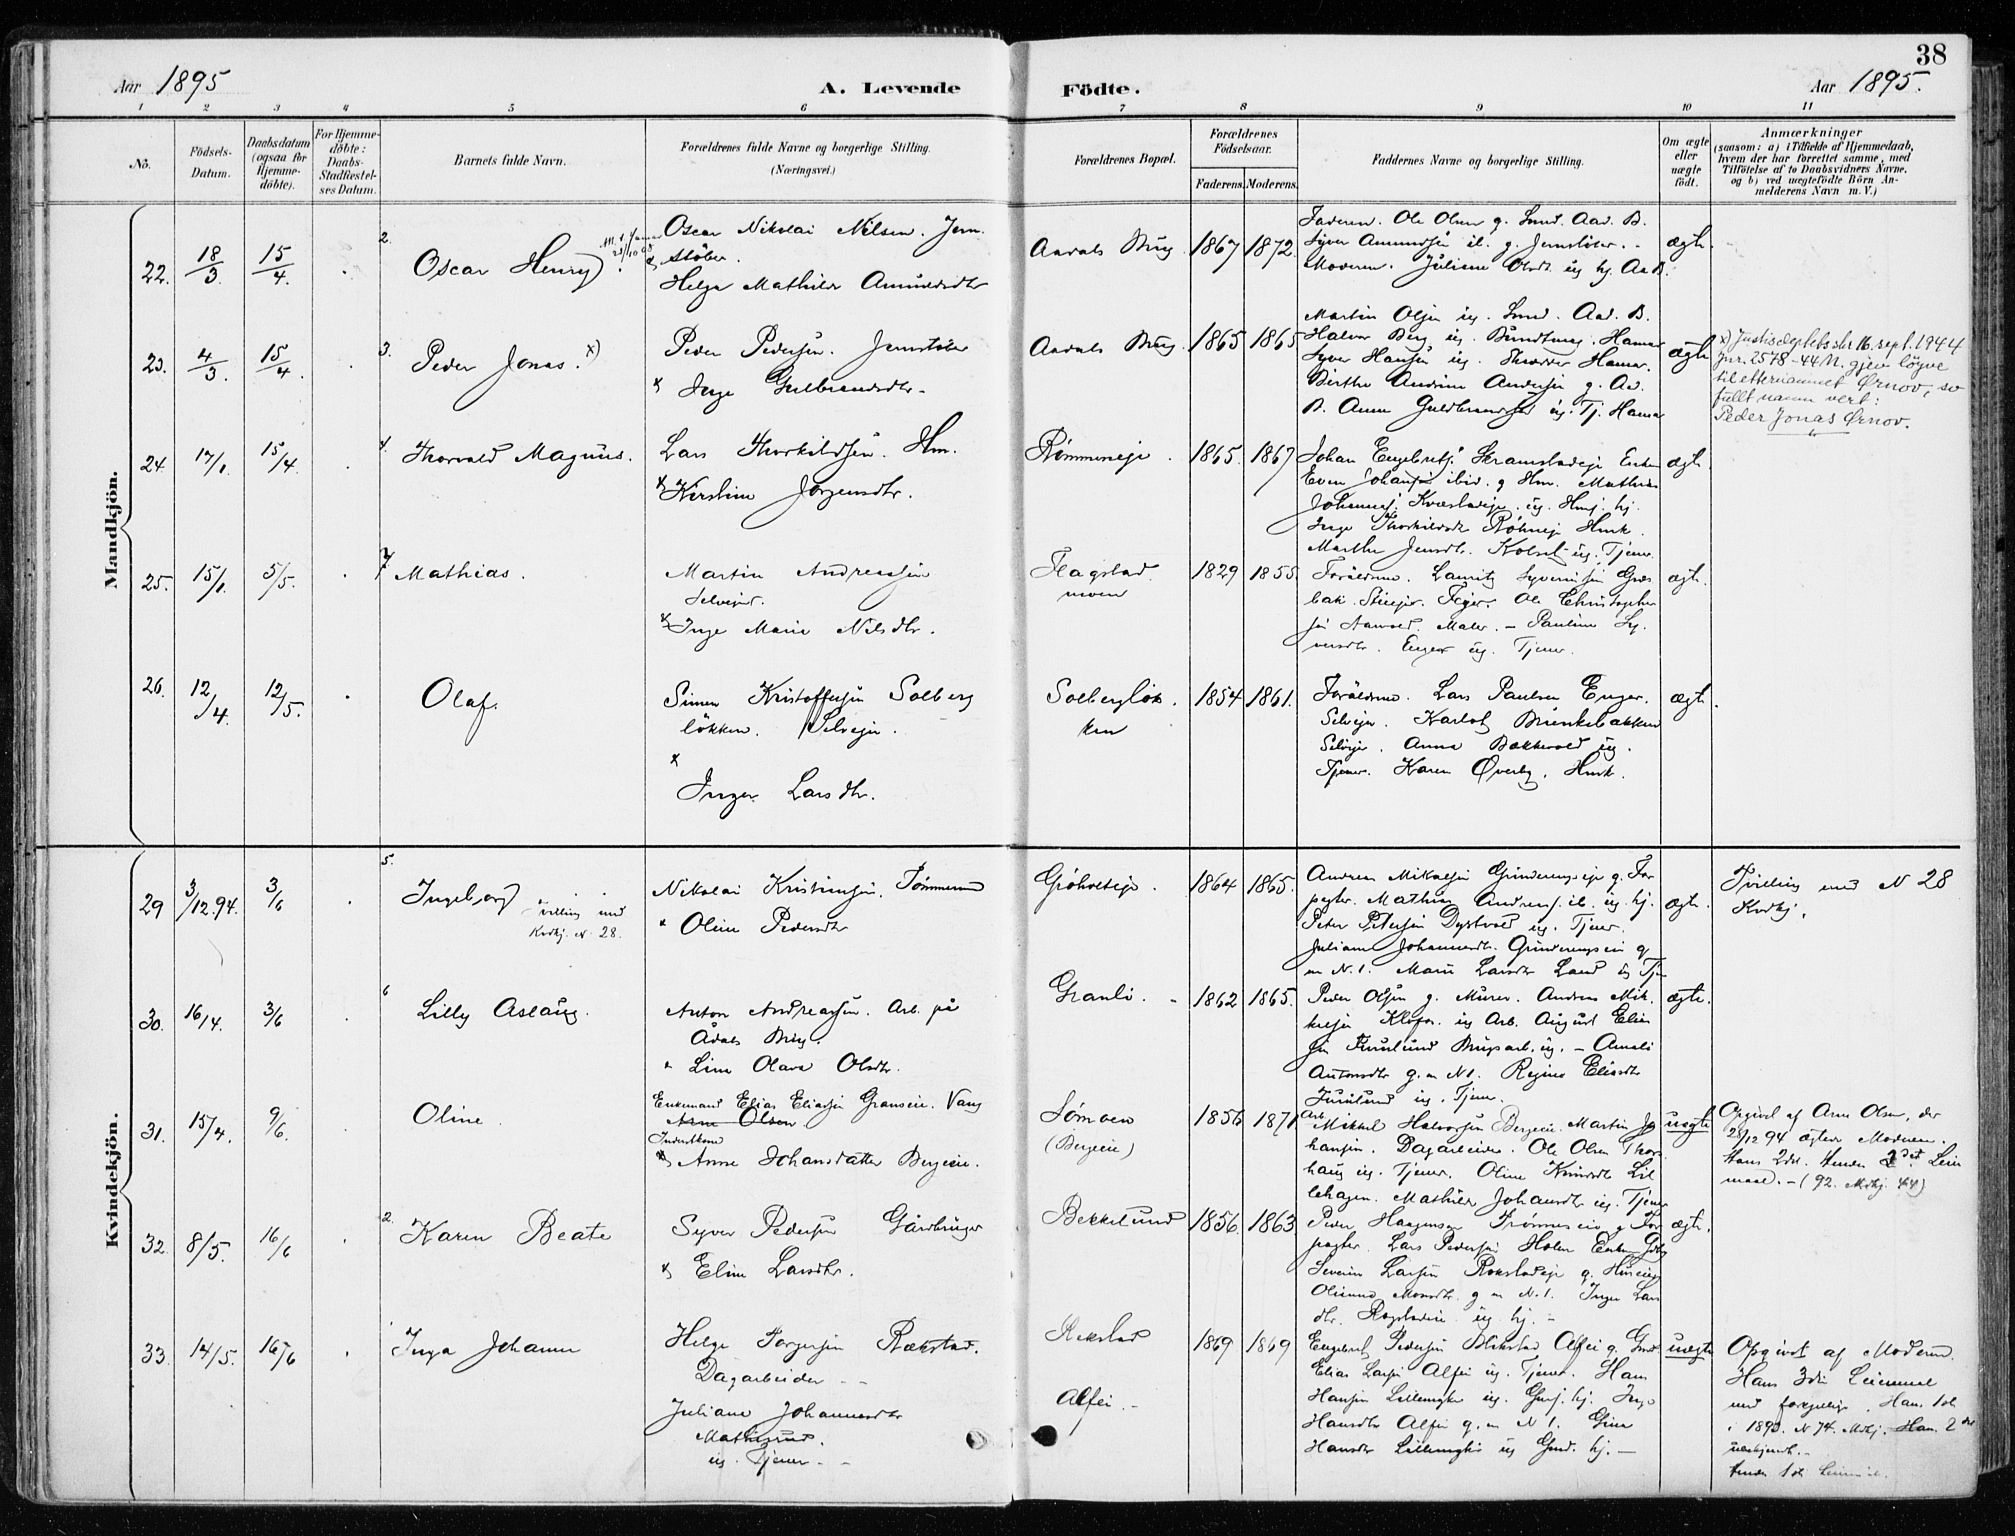 38
Aar 1895
A. Levende
Födte.
Aar 1895.
1 2 3 4 5 6 7 8 9 10 11
No.
Födsels-
Datum.
Daabsdatum
(ogsaa for
Hjemme-
döbte).
For Hjemme-
döbte:
Daabs-
Stadfæstel-
ses Datum.
Barnets fulde Navn.
Forældrenes fulde Navne og borgerlige Stilling.
(Næringsvei.)
Forældrenes Bopæl.
Forældrenes
Födselsaar.
Faderens.
Moderens.
Faddernes Navne og borgerlige Stilling.
Om ægte
eller
uægte
födt.
Anmærkninger
(saasom: a) i Tilfælde af Hjemmedaab,
hvem der har forrettet samme, med
Tilföielse af to Daabsvidners Navne,
og b) ved uægtefödte Börn An-
melderens Navn m. V.)
Mandkjön.
22. 18/3 15/4 2. Oscar Henry
Oscar Nikolai Nilsen. Jern-
stöber.
Helga Mathilde Amundsdtr
Aadals Brug 1867 1872.
Faderen. Ole Olsen g. Smed. Aad. B.
Syver Amundsen ib. g. Jernstöber. -
Moderen. Juliane Olsdt. ug. hj. Aa B.
ægte
23. 4/3. 15/4. 3. Peder Jonas. x)
Peder Pedersen. Jernstöber
x Inge Gulbrandsdtr.
Aadals Brug 1865 1865
Martin Olsen ug. Smed. Aad. B.
Halvor Berg ug. Hamar
Syver Hansen ug. Skrædder Hamar.
Birthe Andrine Andersen g. Aad.
B. Anne Guldbrandsd ug. Tj. Hamar
ægte
x) Justisdeptets skr 16. sept. 1944
Jnr. 2578-44 M. gjev löyve
til etternamnet Ørnov, so
fullt namn vert:
Peder Jonas Ørnov.
24. 17/1 15/4. 4. Thorvald Magnus.
Lars Thorkildsen. Hm.
x Kirstine Jörgensdtr.
Römmeneje 1865. 1867
Johan Engebretsj. Skramstadeje Enkem
Even Johansen ibid. g Hm. Mathias
Johannesj. Kvæstadeje. ug. hj.
Inge Thorkildsdt Husk.
Marthe Jensdtr. Kolset ug. Tjener.
ægte
25. 15/1. 5/5. 7. Mathias.
Martin Andreassen
Selvejer.
x Inge Marie Nilsdtr.
Flagstad
moen
1829 1855.
Forældrene. Lauritz Syversen
Ole Christopher
sen Maler. - Pauline Sy-
versdtr. Enger ug. Tjener.
ægte.
26. 12/4. 12/5. Olaf.
Simen Kristoffersen Solberg
løkken. Selvejer.
x
Inger Larsdtr.
Solbergløk
ken
1854 1861.
Forældrene. Lars Paulsen Enger.
Selvejer. Karlot Brenkebakken
Selvejer. Anna Bækkevold ug.
Tjener. Karen Øverby. Husk.
ægte.
Kvindekjön.
29 3/12.94. 3/6 5. Ingeborg
Tvilling med
Kvdkj. N. 28.
Nikolai Kristiansen. Tömmermd
x Oline Pedersdtr
1864 1865.
Andreas Mikkelsen g. For
pagter. Mathias Andreasj. ib. ug. hj.
Peter Petersen Dystvold ug. Tjener.
Juliane Johannesdtr. g
m N. 1. Marie Larsdtr Land ug Tje
ægte.
Tvilling med N 28
Kvdkj.
30. 16/4. 3/6 6 Lilly Aslaug.
Anton Andreassen. Arb. på
Ådals Brug.
x Lina Olava Olsdtr.
Granli. 1862 1865.
Peder Olsen g. Murer. Andreas Mik-
kelsen ug Arb. August Elias
sen Furulund Brugsarb. ug. - Amalie
Antonsdtr g. m N 1. Regine Eliasdtr
Furulund ug. Tjener.
ægte.
31. 15/4. 9/6. Oline
Enkemand Elias Eliassen Granseie. Vang
Arne Olsen
Inderstkone
x Anne Johansdatter Bergseie.
Sömoen
(Bergseie)
1856 1871
Arb. Mikkel Halvorsen Bergeeie. Martin Jo
hansen. Dagarbeider. Ole Olsen Thor
haug ug. Tjener. Oline Knudsdtr Lil
lehagen. Mathilde Johansdtr ug. Tjener
uægte
Opgivet af Arne Olsen, der
28/12 94 ægtede Moderen.
Hans 2det. Hendes 2det. Leier
maal. - (92. Mdkj. 44)
32. 8/5. 16/6 2. Karen Beate
Syver Pedersen Gårdbruger
x Eline Larsdtr.
Bekkelund 1856. 1863
Peder Haagensen g For
pagter. Lars Pedersen Holen
Severin Larsen Rokstadeje g.
g m N. 1. Inger Lars
dtr. ug. hj. -
ægte.
33. 14/5. 16/6 Inga Johanne
Helge Torgersen Rækstad.
Dagarbeider - -
Juliane Johannesdtr
Mathisrud.
ug. Tjener. -
Rekstad
Alfei. -
1869 1869
Engebret Pedersen Alfei g.
Elias Larsen Alfei ug. Tjener. Hans
Hansen ug. hj. Inge
Hansdtr Alfei g. m N 1. Gine
Hansdtr ug hj. -
uægte
Opgivet af Moderen.
Hans 3die Leiermaal
med forskjellige. Hans 1ste
i 1893. N 74. Mdkj. Hans 2det
udenfor.
Hendes 1ste Leiermaal.